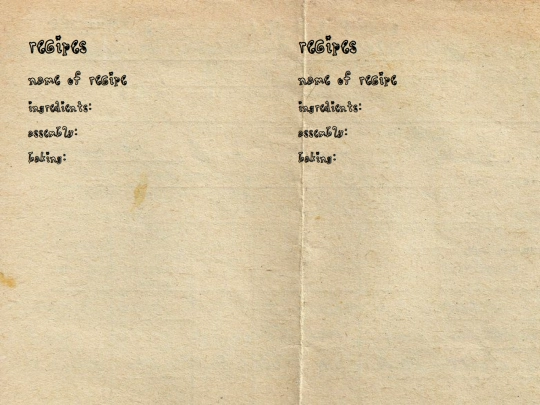 recipes
name of recipe
ingredients:
assembly:
baking:
recipes
name of recipe
ingredients:
assembly:
baking: